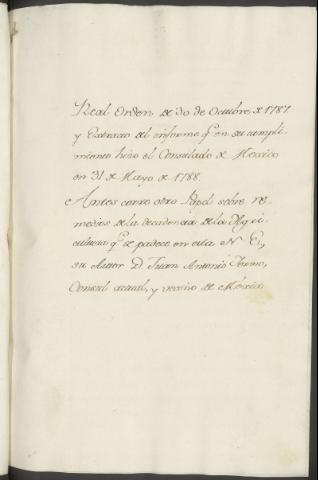 Real Orden de 30 de Octubre de 1787
y Extracto del informe q.e en su cumpli-
miento hizo el Consulado de Mexico
en 31 de Mayo de 1788.
Antes corre otro Papel sobre re-
medios de la decadencia de la Agri-
cultura q.e se padece en esta N. E.,
su Autor D. Juan Antonio
Consul actual, y vecino de Mexico